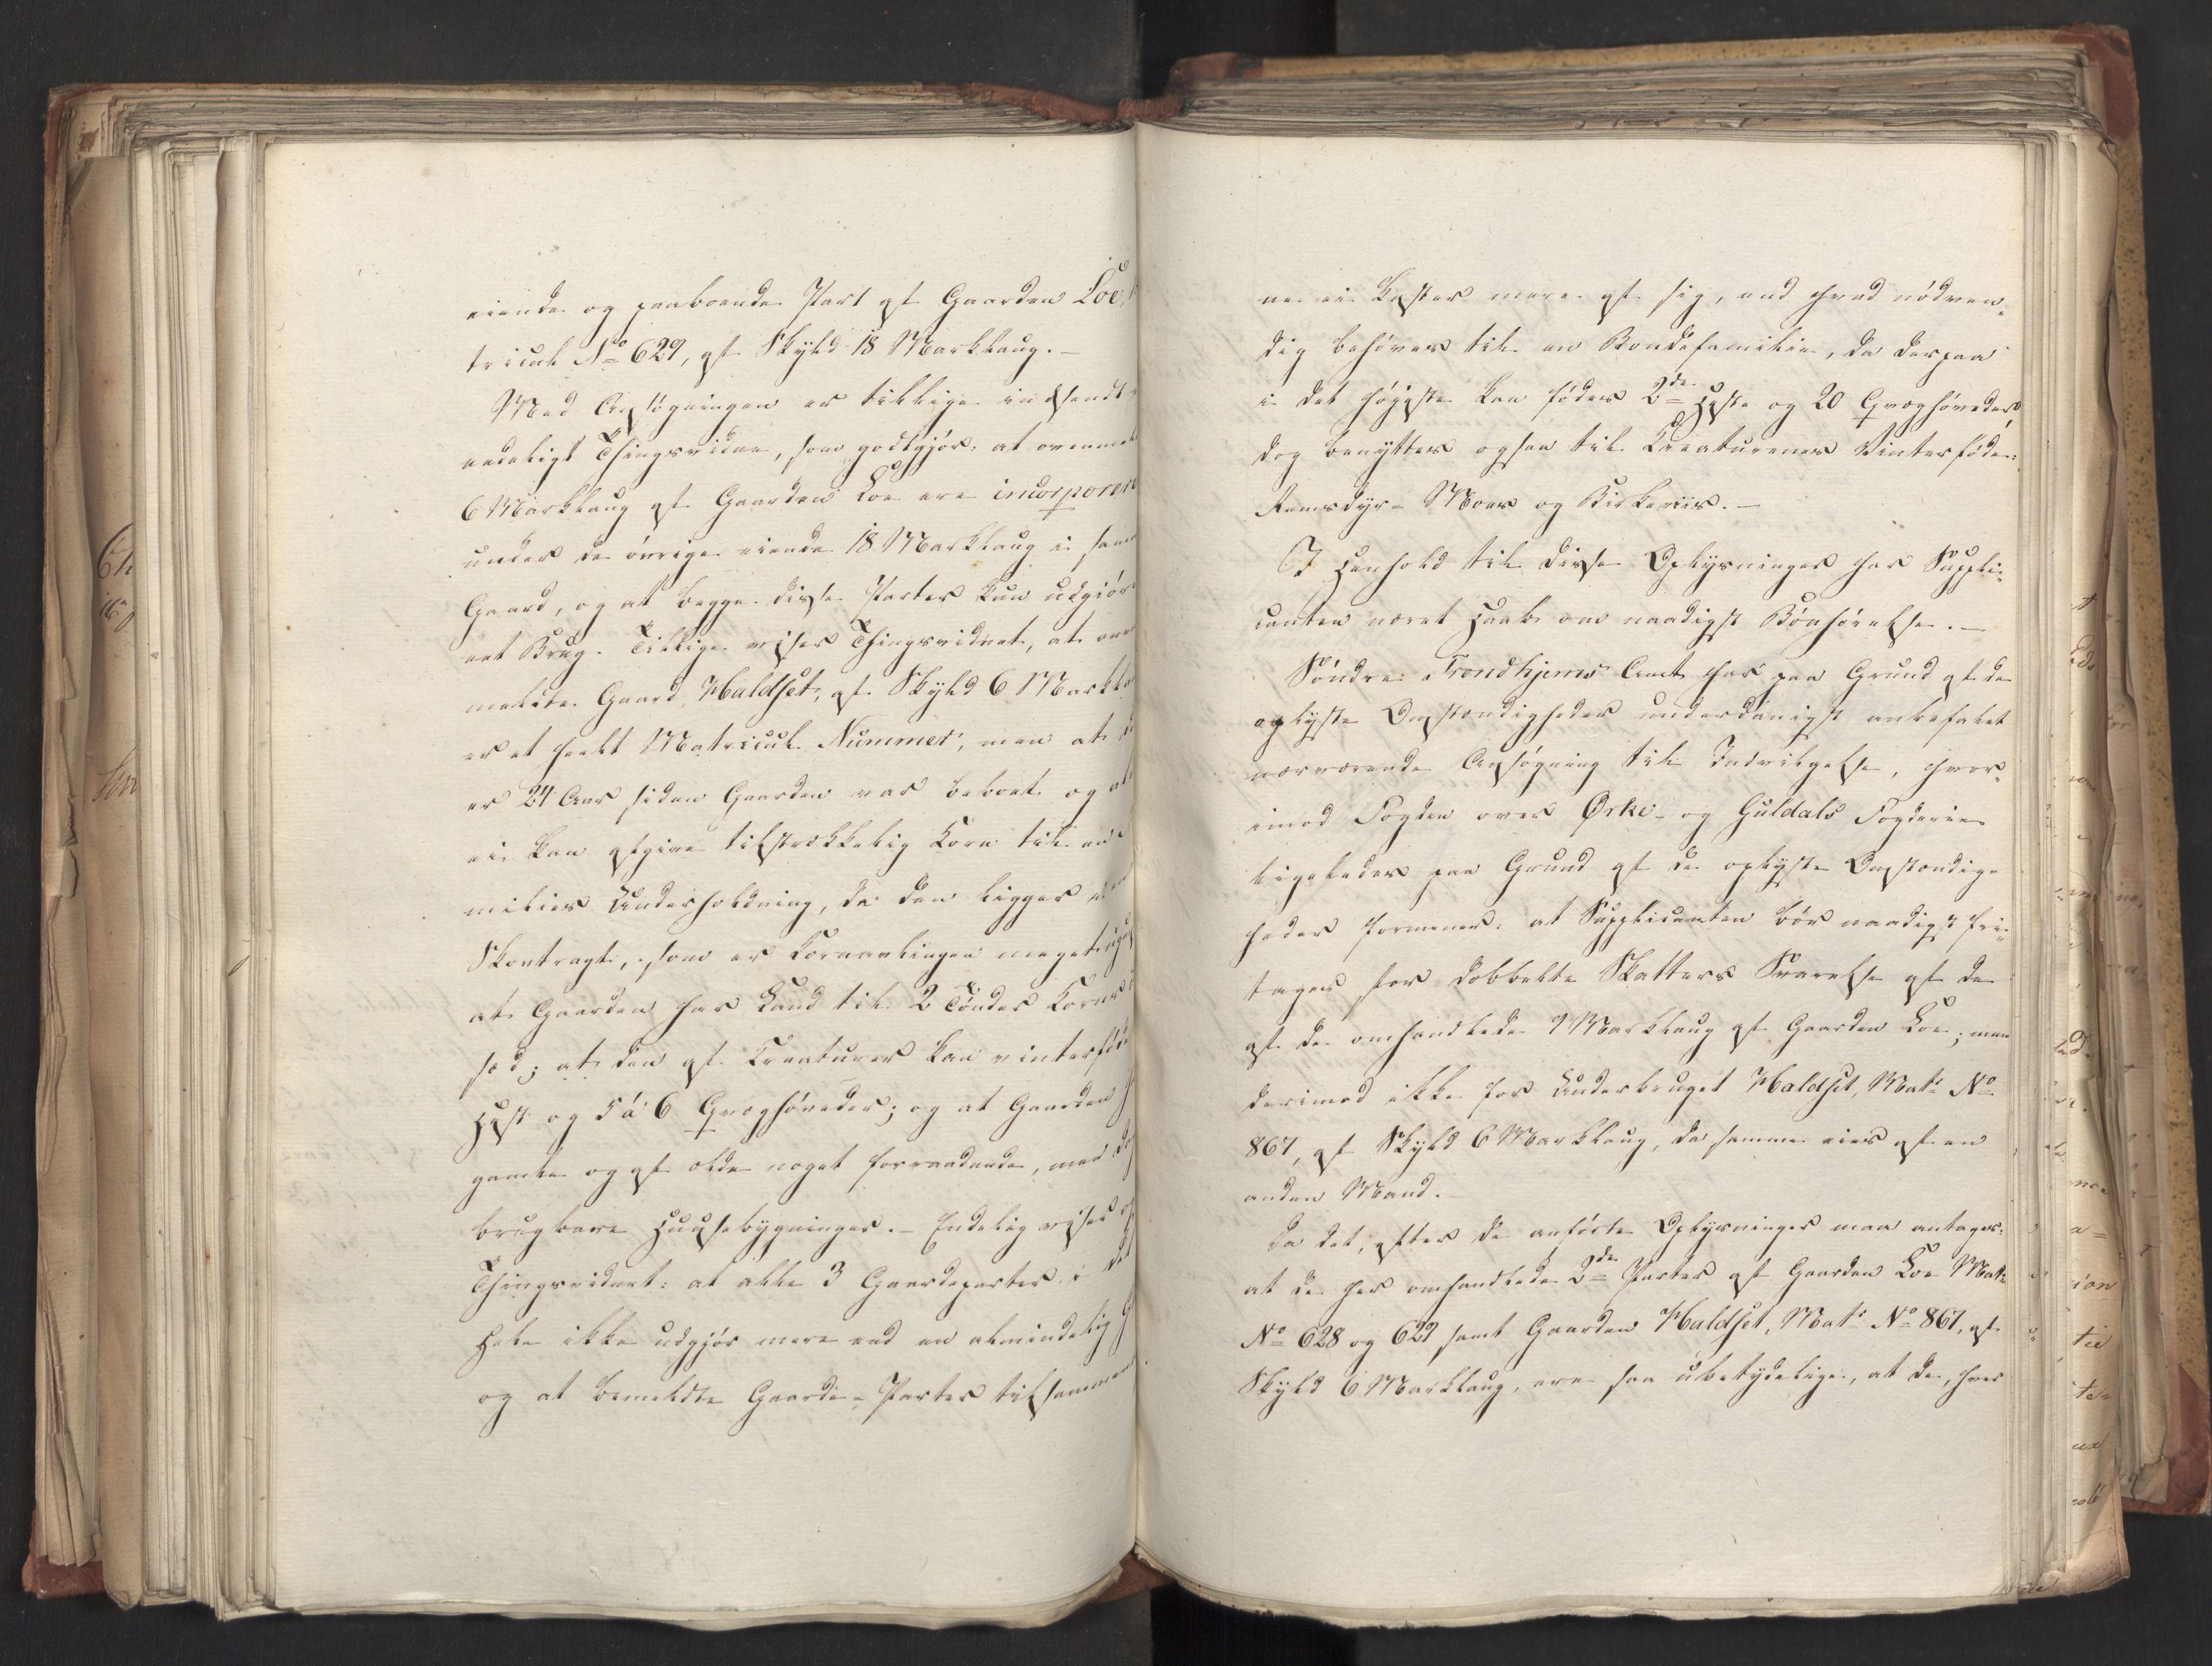 eiende og paaboende Part af Gaarden Loe,
tricul No 629, af Skyld 18 Marklaug.—
Med Ansøgningen er tillige indsendt
endeligt Thingsvidne, som godtgjør: at ovenmel
6 Marklaug af Gaarden Loe ere incorporere
under de øvrige eiende 18 Marklaug i samme
Gaard, og at begge disse Parter kun udgiør
eet Brug. Tillige viser Thingsvidnet, at oven
meldte Gaard Haldset, af Skyld 6 Markla
er et heelt Matricul Nummer, men at
er 24 Aar siden Gaarden var beboet og at
ei kan afgive tilstrækkelig Korn til en
milies Underholdning, da den ligger i en
Skovtragt, som er Kornavlingen meget
at Gaarden har Land til 2 Tønder Korns
sæd; at den af Kreaturer kan vinterføde
Hest og 5 á 6 Qvæghøveder; og at Gaarden
gamle og af Ælde noget forraadnede, men dog
brugbare Huusebygninger.— Endelig viser
Thingsvidnet: at alle 3 Gaardeparter i det
Hele ikke udgjør mere end en almindelig
og at bemeldte Gaarde-Parter tilsammen
ne ei kaster mere af sig, end hvad nødven-
dig behøves til en Bondefamilie, da derpaa
i det høiste kan fødes 2de Heste og 20 Qvæghøveder,
dog benyttes ogsaa til Kreaturenes Vinterføde:
Reensdyr-Moes og Birkeriis.—
I Henhold til disse Oplysninger har Suppli-
canten næret Haab om naadigst Bønhørelse.—
Søndre Trondhjems Amt har paa Grund af de
oplyste Omstændigheder underdanigst anbefalet
nærværende Ansøgning til Indvilgelse, hvor-
imod Fogden over Ørke- og Guldals Fogderie
ligeledes paa Grund af de oplyste Omstændig-
heder formener: at Supplicanten bør naadigst fri-
tages for dobbelte Skatters Svarelse af de
af de omhandlede 9 Marklaug af Gaarden Loe; men
derimod ikke for Underbruget Haldset, Matr No
867, af Skyld 6 Marklaug, da samme eies af en
anden Mand.
Da det, efter de anførte Oplysninger maa antages:
at de her omhandlede 2de Parter af Gaarden Loe Matr
No 628 og 629 samt Gaarden Haldset, Matr No 867, af
Skyld 6 Marklaug, ere saa ubetydelige, at de, hver